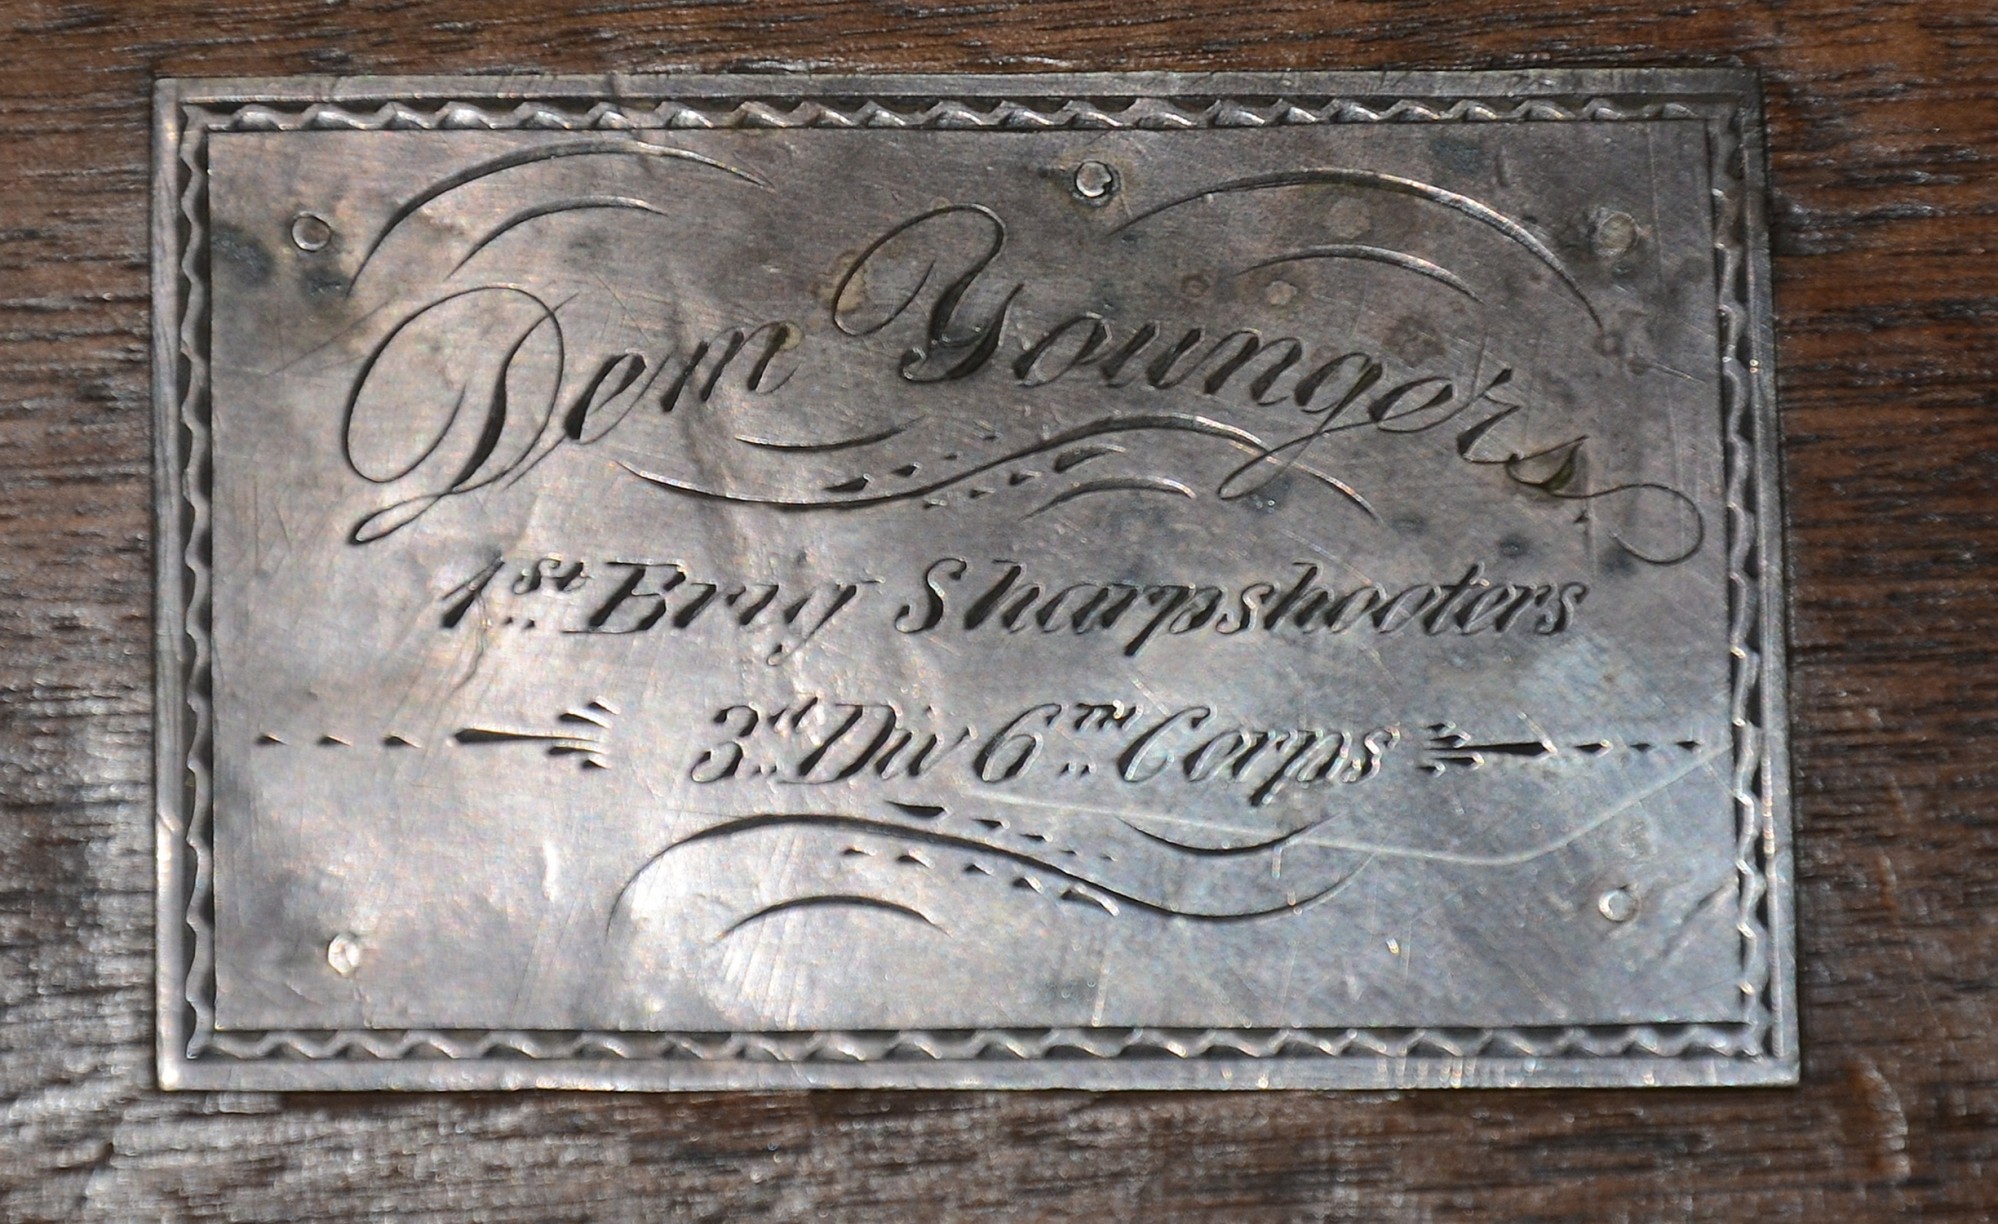 Dem Youngers
1st Brig Sharpshooters
3d Div 6th Corps